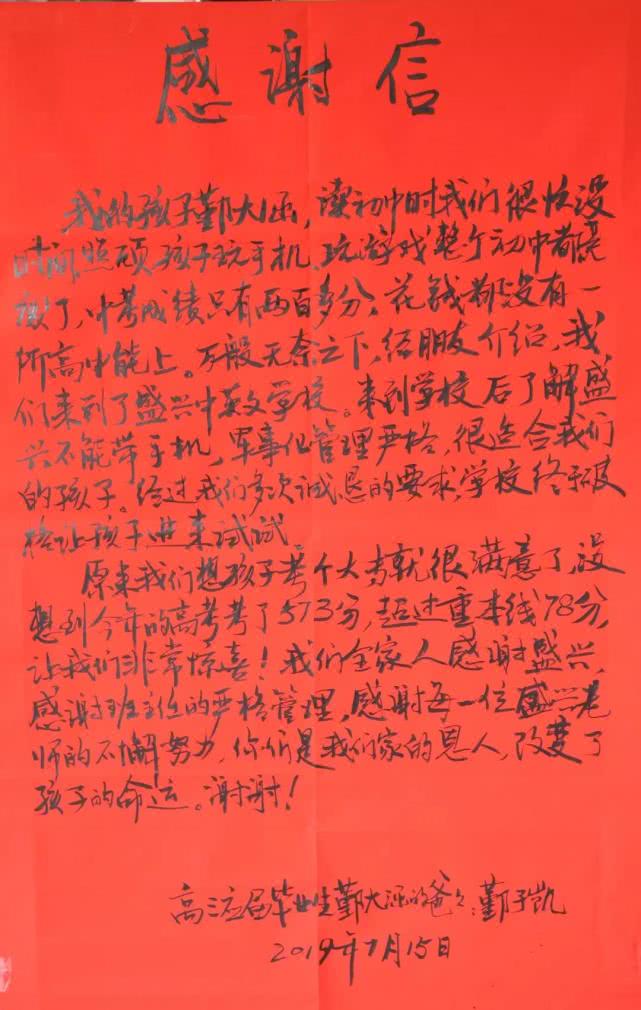 感谢信
我的孩子鄞大涵，读初中时我们很忙没
时间照顾孩子玩手机、玩游戏整个初中都荒
废了，中考成绩只有两百多分。花钱都没有一
所高中能上。万般无奈之下，经朋友介绍，我
们来到了盛兴中英文学校。来到学校后了解盛
兴不能带手机，军事化管理严格，很适合我们
的孩子。经过我们多次诚恳的要求，学校终于破
格让孩子进来试试。
原来我们想孩子考个大专就很满意了，没
想到今年的高考考了573分，超过重本线78分，
让我们非常惊喜！我们全家人感谢盛兴，
感谢班主任的严格管理，感谢每一位盛兴老
师的不懈努力，你们是我们家的恩人，改变了
孩子的命运。谢谢！
高三应届毕业生鄞大涵的爸爸：鄞子凯
2019年7月15日